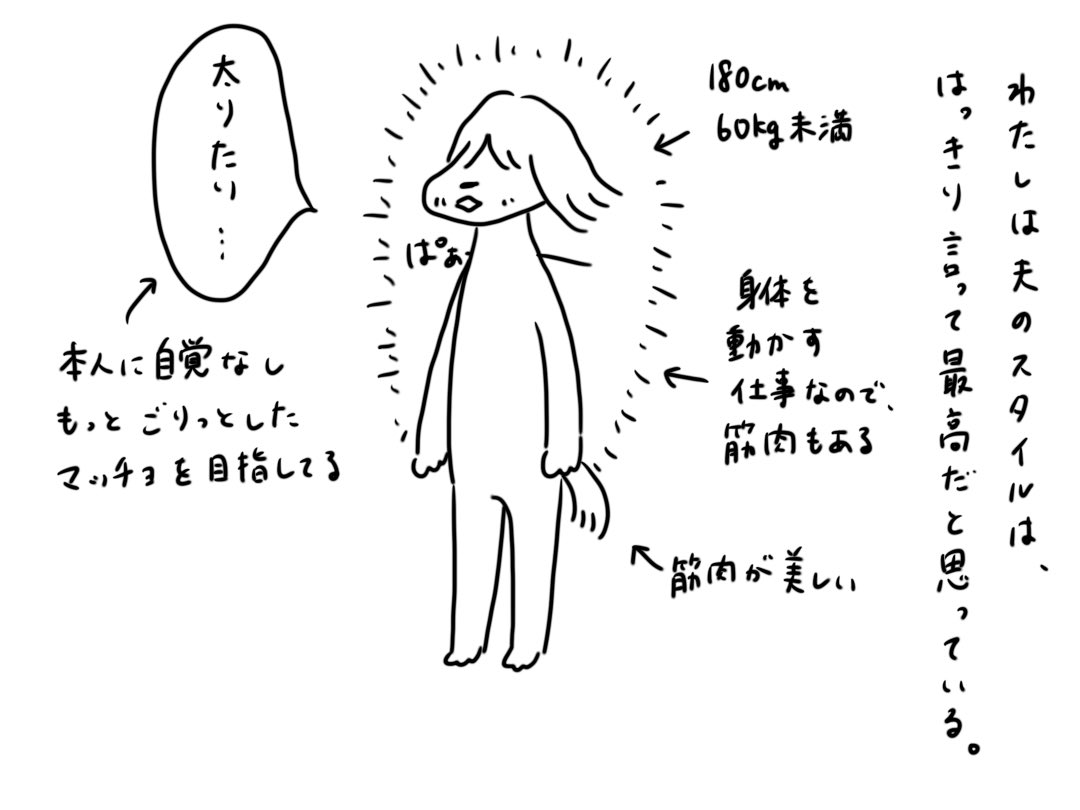 わたしは夫のスタイルは、
はっきり言って最高だと思っている。
180cm
60kg未満
身体を
動かす
仕事なので、
筋肉もある
筋肉が美しい
ぱぁ
太りたり…
本人に自覚なし
もっとごりっとした
マッチョを目指してる